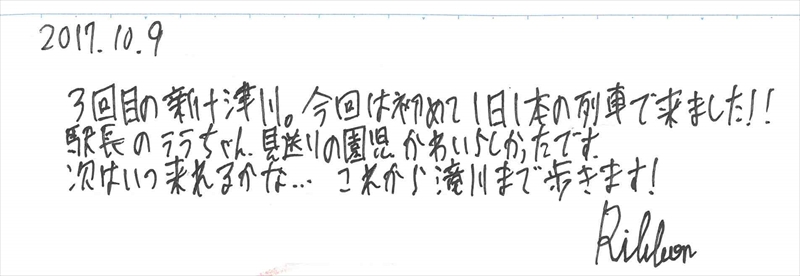 2017.10.9
3回目の新十津川。今回は初めて1日1本の列車で来ました!!
駅長のララちゃん、見送りの園児かわいらしかったです。
次はいつ来れるかな… これから滝川まで歩きます!
Ribbon